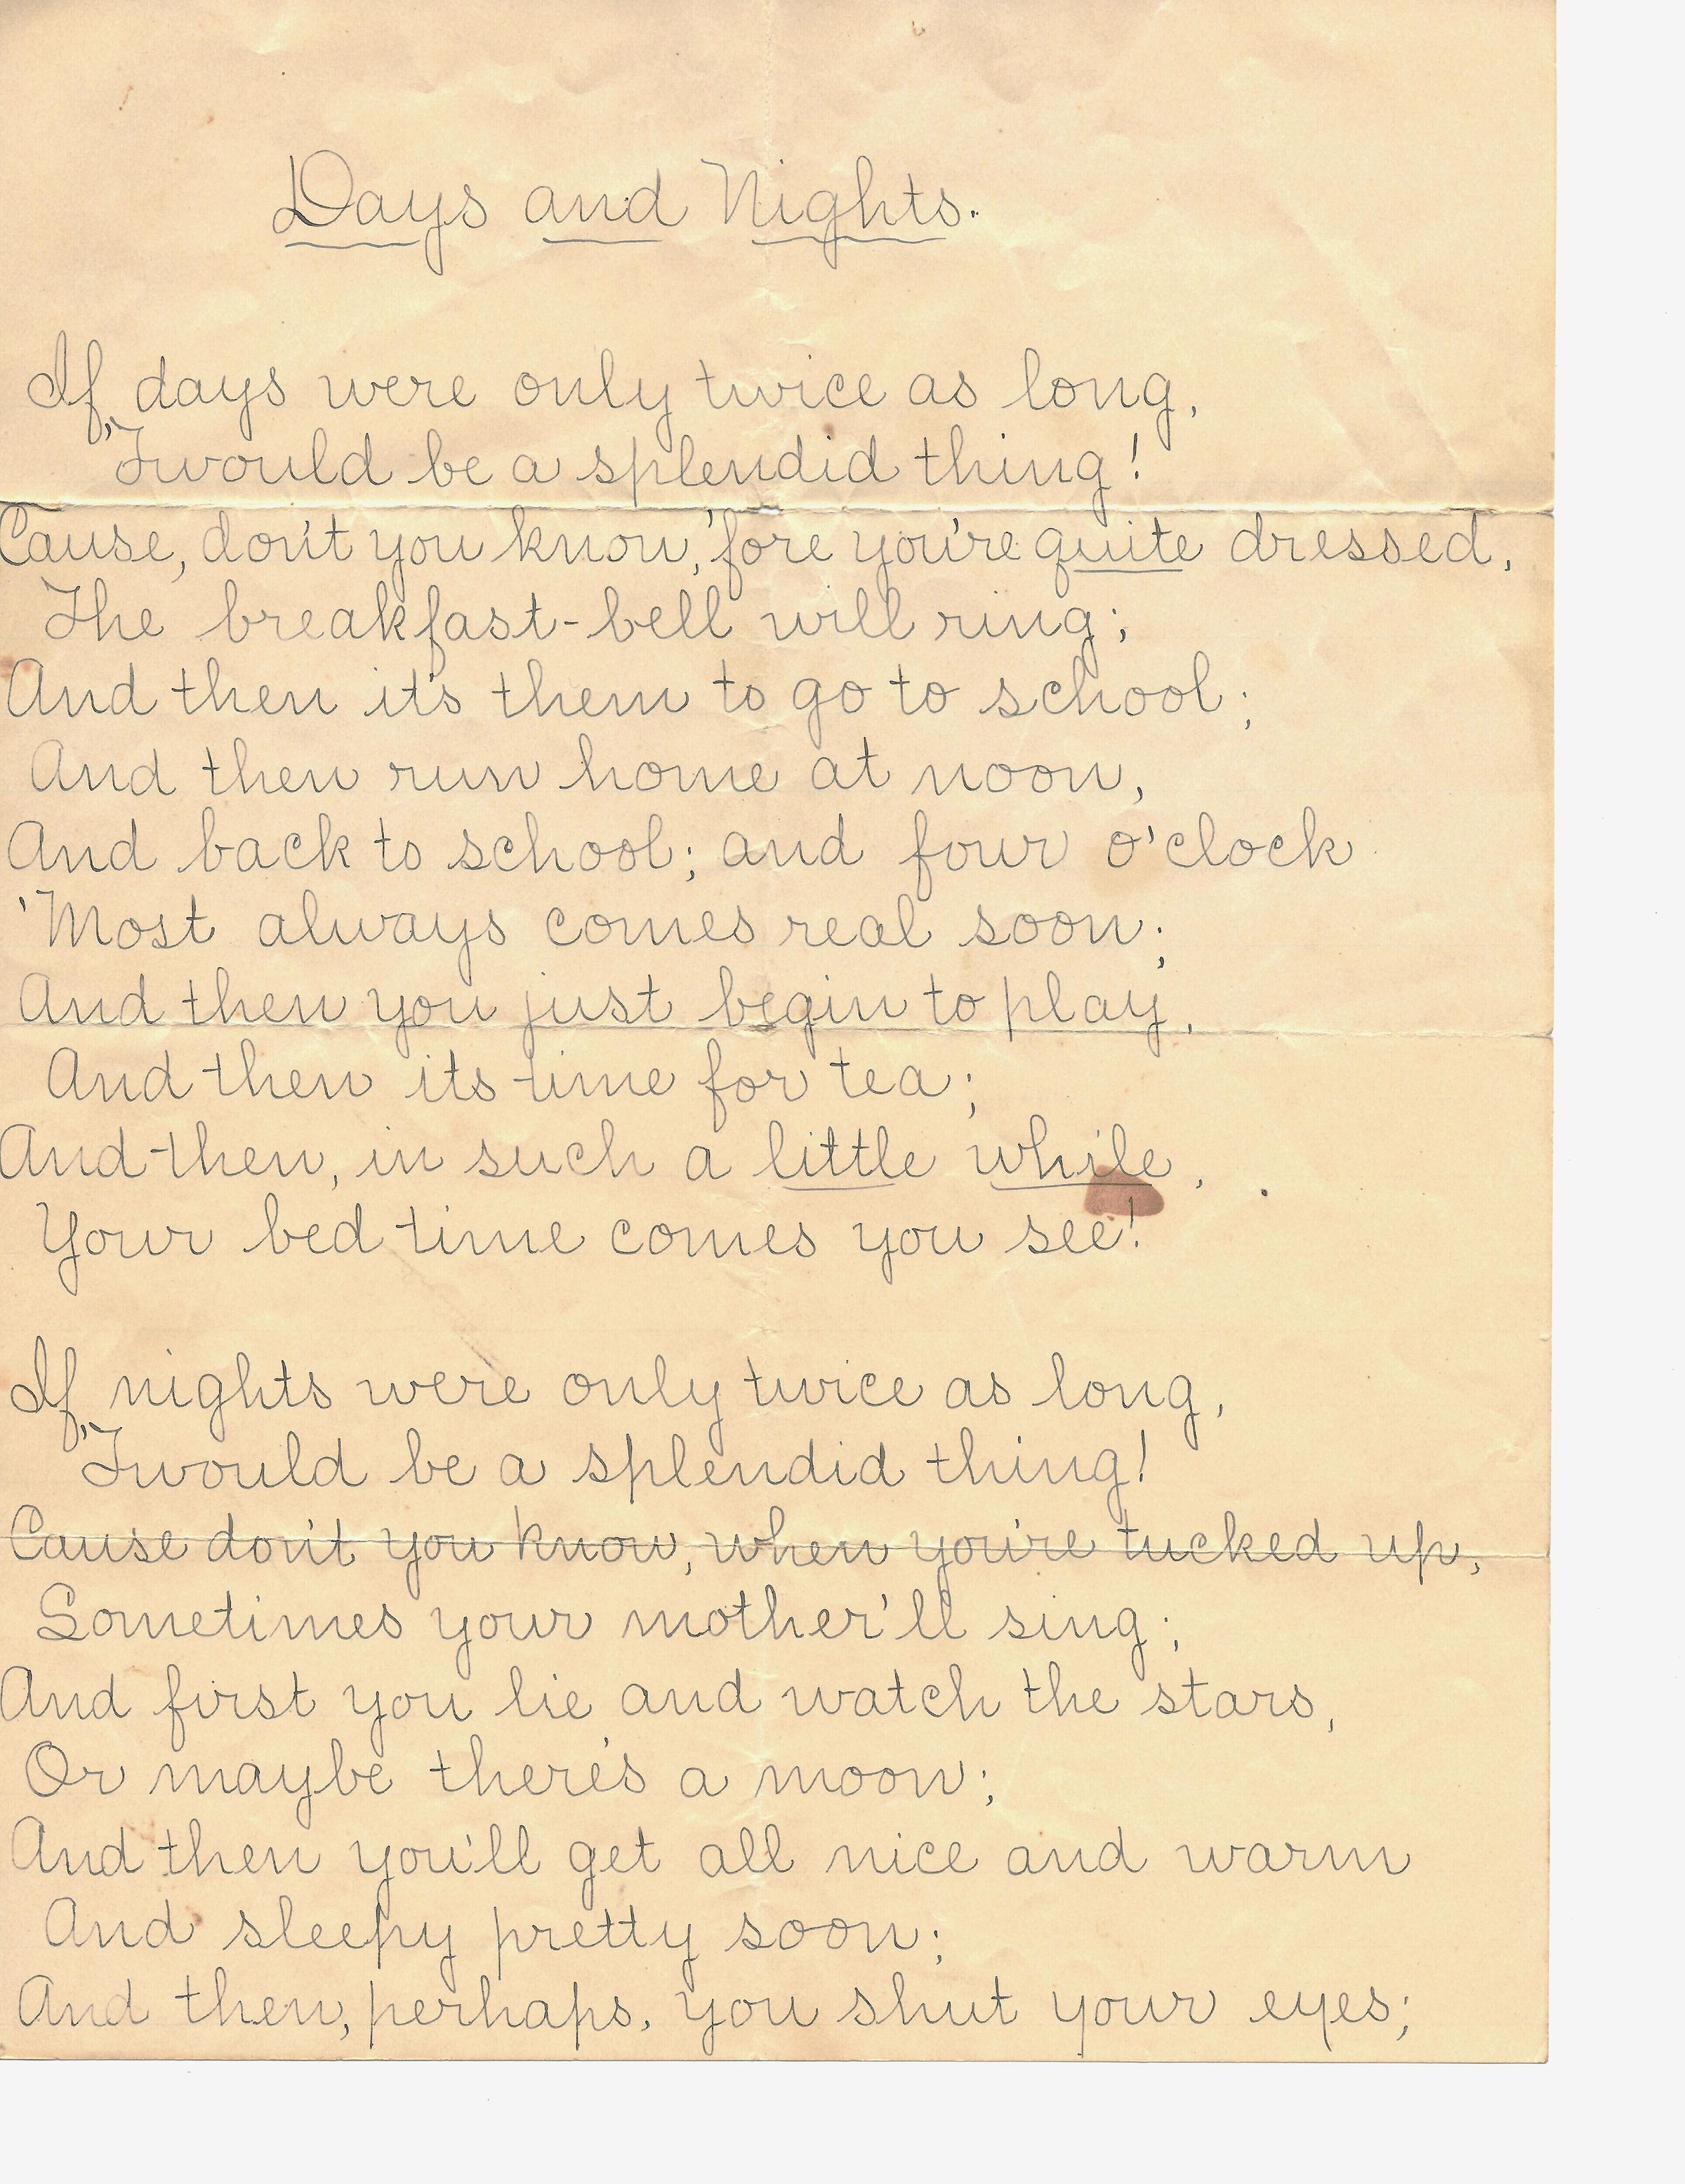 Days and Nights.
If days were only twice as long,
'Twould be a splendid thing!
Cause, don't you know, 'fore you're quite dressed,
The breakfast-bell will ring;
And then it's them to go to school;
And then run home at noon,
And back to school; and four o'clock
'Most always comes real soon;
And then you just begin to play,
And then its time for tea;
And then, in such a little while,
Your bed time comes you see!
If nights were only twice as long,
'Twould be a splendid thing!
Cause don't you know, when you're tucked up,
Sometimes your mother'll sing;
And first you lie and watch the stars,
Or maybe there's a moon;
And then you'll get all nice and warm
And sleepy pretty soon;
And then, perhaps, you shut your eyes;